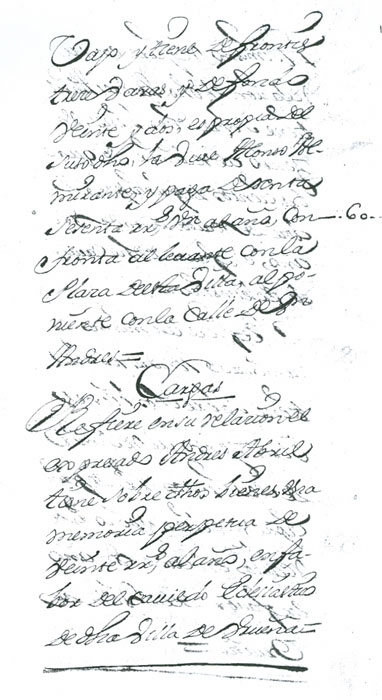 Vajo, y tiene de frontis
trece varas, y de fondo
veinte y dos, es propia del
susodho, la vive Alonso Al-
mirante, y paga de renta
setenta rs. Vn al año, Con-..60..
fronta al levante con la
Plaza de dha Villa, al po-
niente con la Calle de Sn
Andres=
Cargas
Refiere en su relacion el
expresado Andres Abril
tiene sobre dhos bienes una
memoria perpetua de
veinte rs. al año, en fa-
bor del cavildo Eclesiastico
de dha Villa de